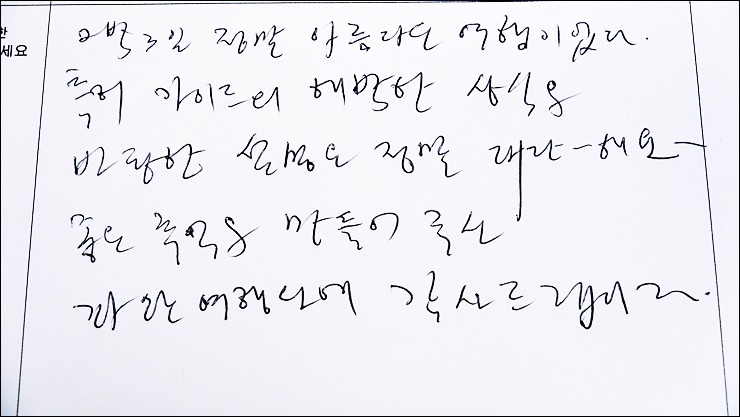 한
세요
2박3일 정말 아름다운 여행이었다.
특히 가이드의 해박한 상식을
바탕한 설명도 정말 대단~해요~
좋은 추억을 만들어 주신
여행사에 감사드립니다.